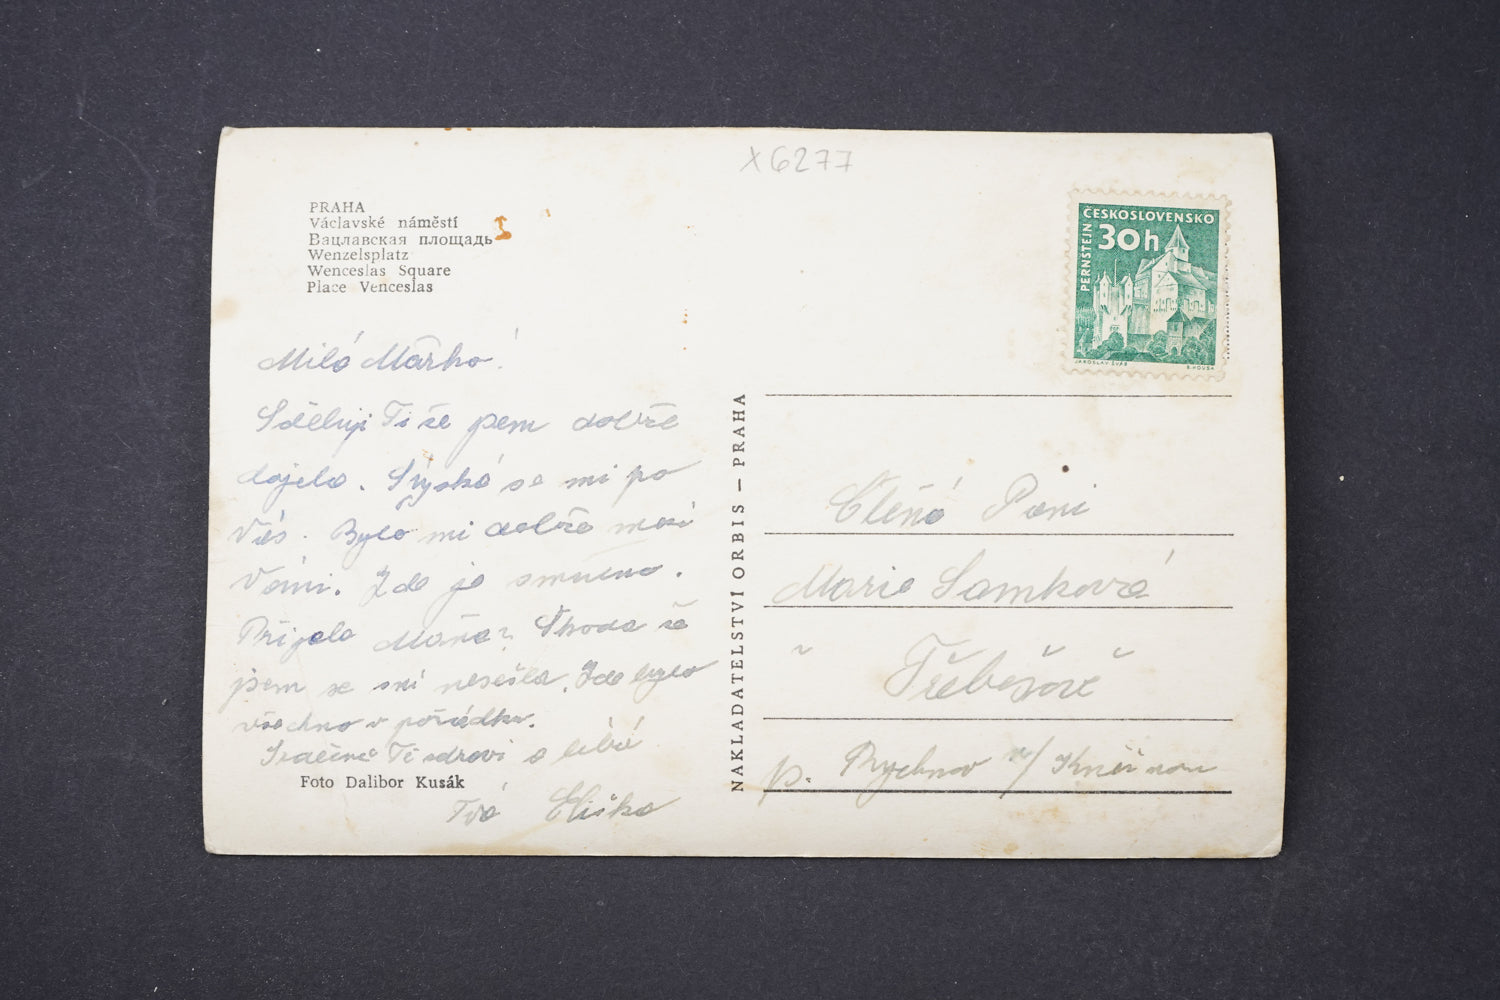 x6277
PRAHA
Václavské náměstí
Вацлавская площадь
Wenzelsplatz
Wenceslas Square
Place Venceslas
ČESKOSLOVENSKO
30h
PERNŠTEJN
JAROSLAV ŠVÁB
Milá Mařko!
Sděluji Ti že jsem dobře
dojela. Stýská se mi po
Vás. Bylo mi dobře mezi
Vámi. Zde je smutno.
Přijela Máňa? Škoda že
jsem se mi nesešla. Zde bylo
všechno v pořádku.
Srdečně Tě zdraví a líbá
Foto Dalibor Kusák
Tvá Eliška
NAKLADATELSTVÍ ORBIS – PRAHA
Ctěná Paní
Marie Samková
Třebešově
p. Rychnov n/ Kněžnou